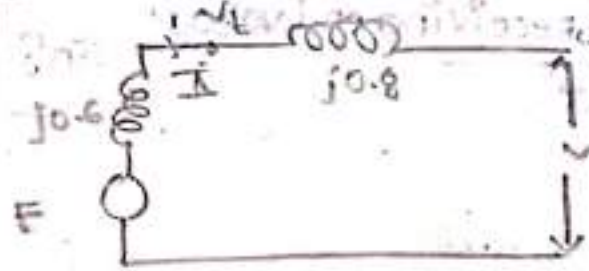 V_t
I
j0.8
j0.6
E
V